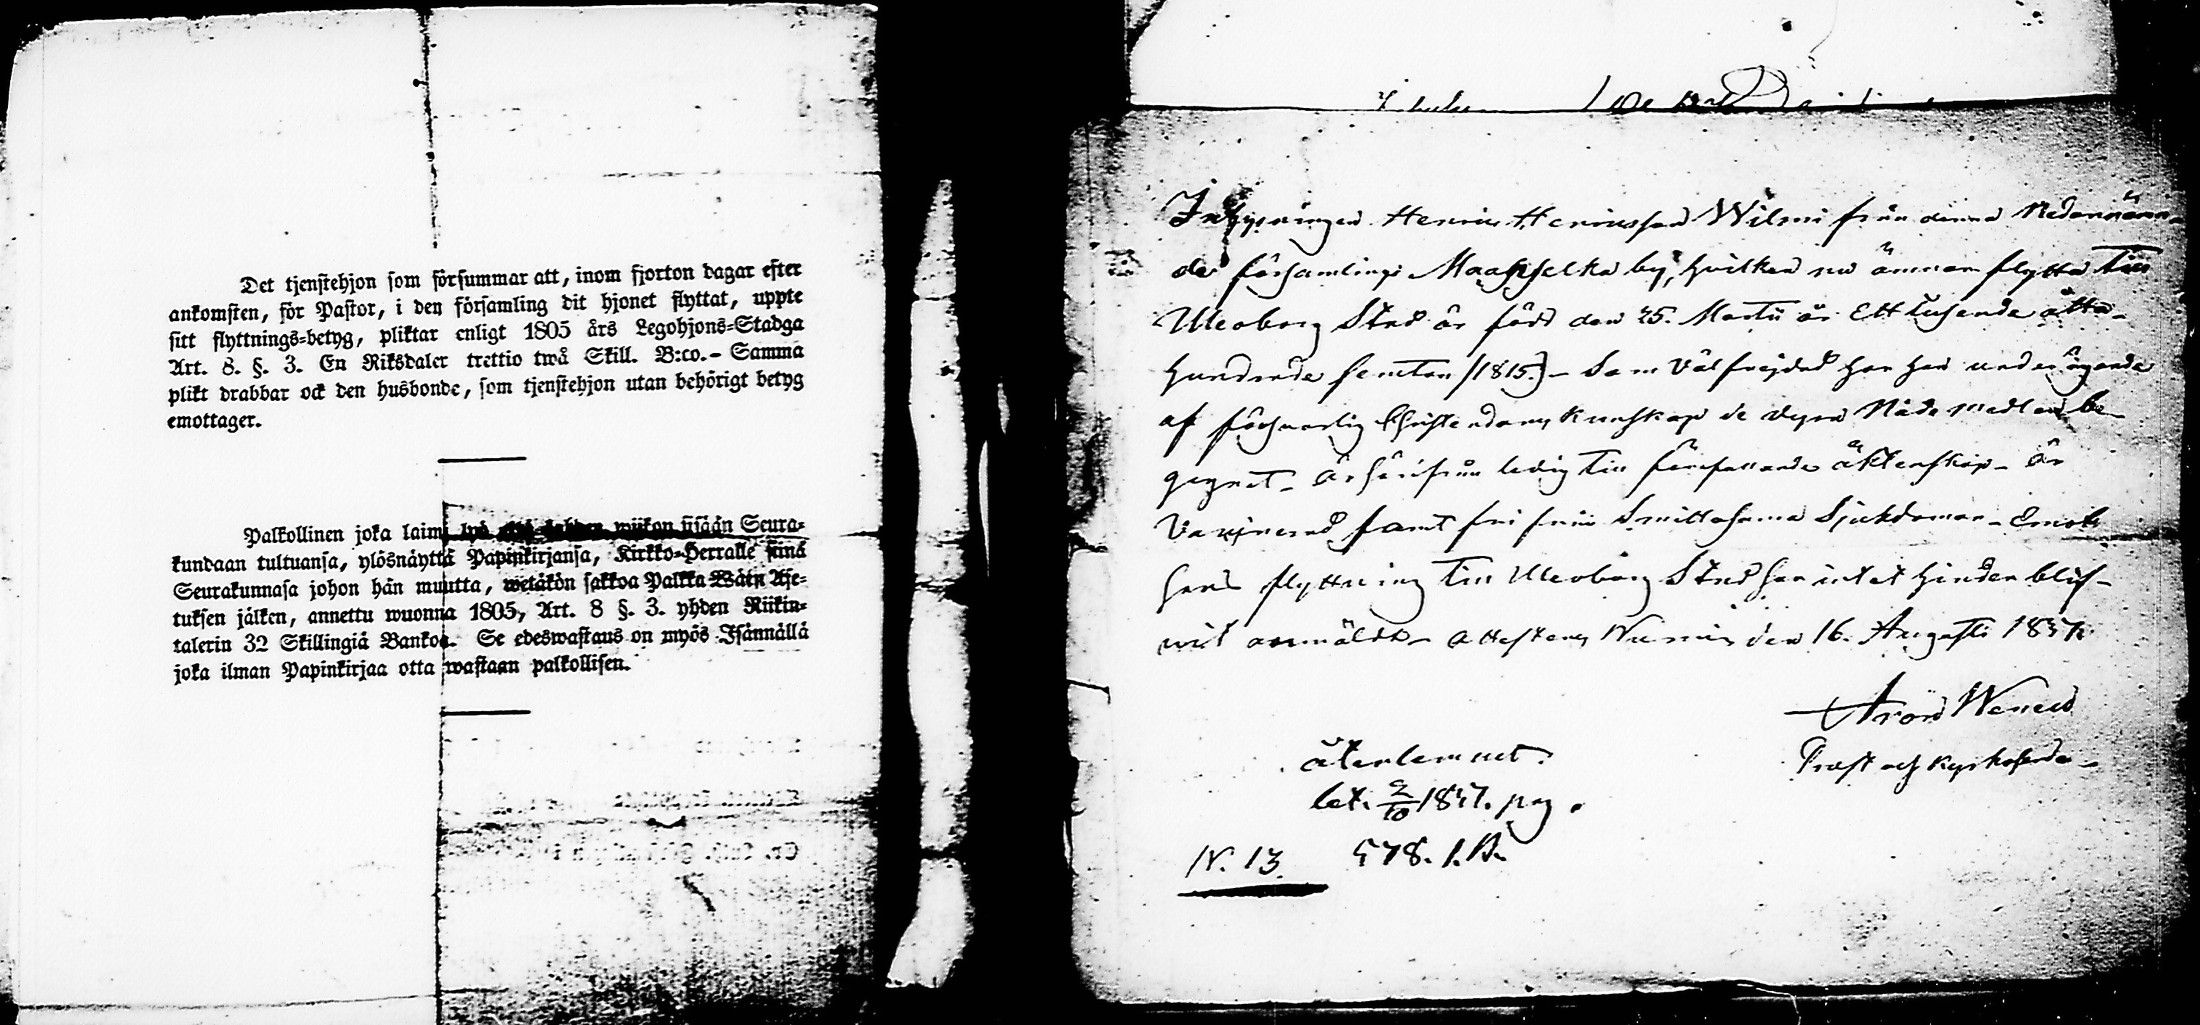 Det tjenstehjon som försummar att, inom fjorton dagar efter
ankomsten, för Pastor, i den församling dit hjonet flyttat, uppte
sitt flyttnings-betyg, pliktar enligt 1805 års Legohjons-Stadga
Art. 8. §. 3. En Riksdaler trettio twå Skill. B:co.- Samma
plikt drabbar ock den husbonde, som tjenstehjon utan behörigt betyg
emottager.
Palkollinen joka laimi lyö wiikon sisään Seura-
kundaan tultuansa, ylösnäyttä Papinkirjansa, Kirkko-Herralle siinä
Seurakunnasa johon hän muutta, wetäkön sakkoa Palkka Wäen Ase-
tuksen jälken, annettu wuonna 1805, Art. 8 §. 3. yhden Riikin-
talerin 32 Skillingiä Bankoa. Se edeswastaus on myös Isännällä
joka ilman Papinkirjaa otta wastaan palkollisen.
Inhysingen Henric Henricsson Wilmi från denna Nedannämn-
de församlings Maaselka by, hvilken nu ämnar flytta till
Uleoborg Stad är född den 25. Martii år Ett tusende åtta-
hundrade femton /1815./- Som Välfrejdad har han under ägande
af försvarlig Christendoms Kunskap de dyra Nådemedlen be-
gagnat- är härifrån ledig till författande äktenskap- är
Vaccinerad samt fri från Smittosamma Sjukdomar- Emot
hans flyttning till Uleoborg Stad har intet hinder blif-
vit anmäldt- Attesteras den 16. Augusti 1847.
Aron
Prost och Kyrkoherde-
återlemnat
let. 2/10 1847. pag.
578. 1. B.
N. 13.